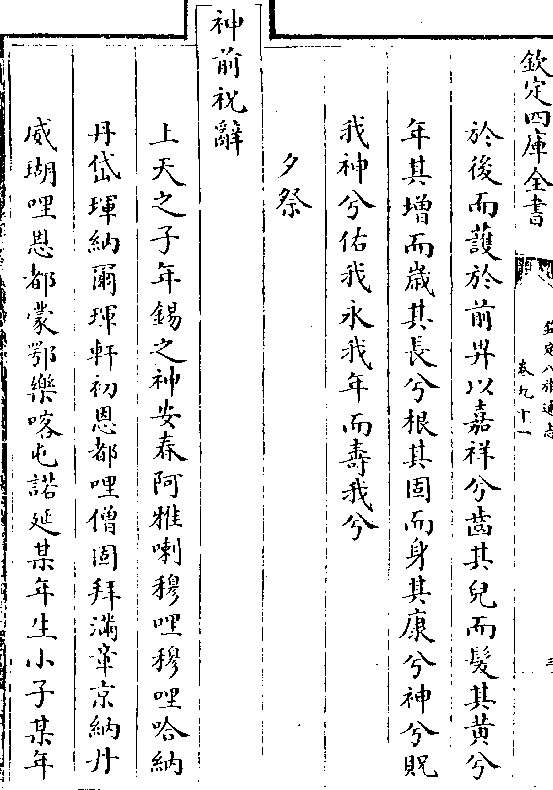 欽定四庫全書
欽定八旗通志
卷九十一
三
於後而䕶於前畀以嘉祥兮齒其兒而髮其黄兮
年其增而歳其長兮根其固而身其康兮神兮貺
我神兮佑我永我年而壽我兮
夕祭
神前祝辭
上天之子年錫之神安春阿雅喇穆哩穆哩哈納
丹岱琿納爾琿軒初恩都哩僧固拜滿章京納丹
威瑚哩恩都蒙鄂樂喀屯諾延某年生小子某年